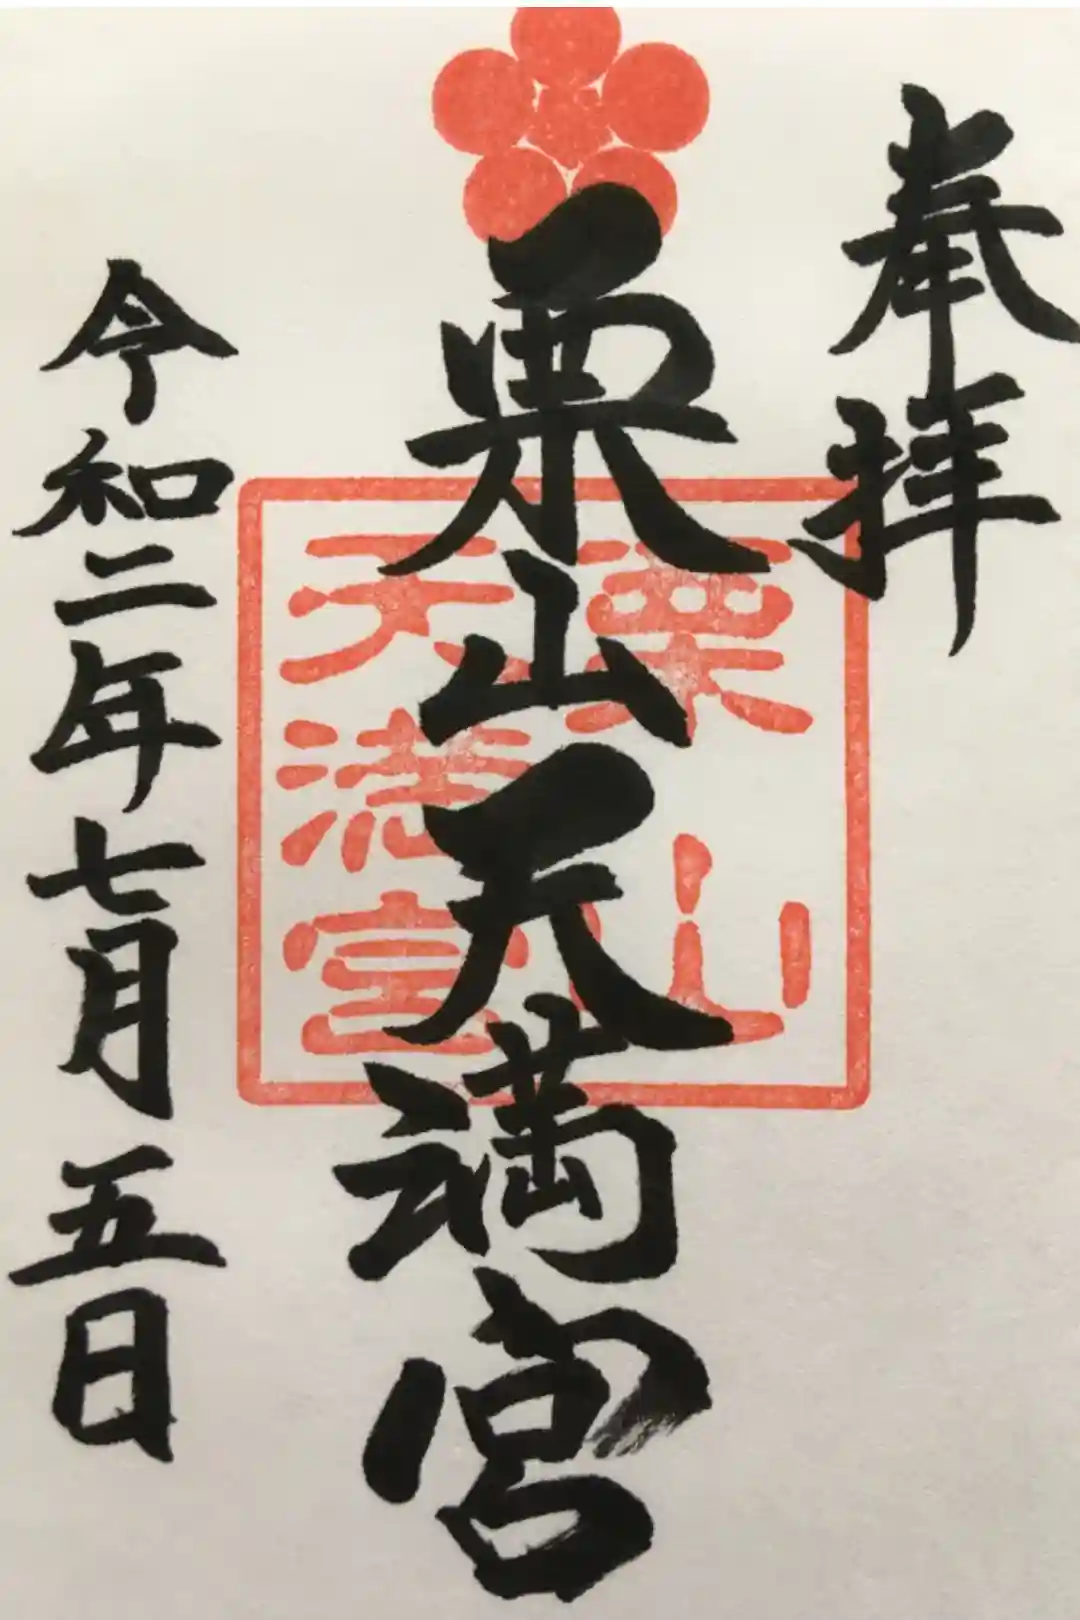 奉拝
栗山天満宮
栗山
天満宮
令和二年七月五日